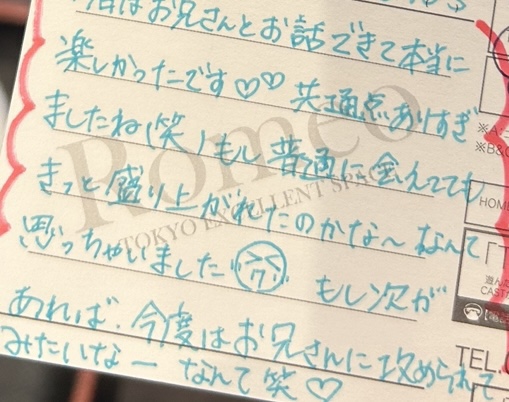 はお兄さんとお話できて本当に
楽しかったです♡♡ 共通点ありすぎ
ましたね(笑)もし普通に会えてても
きっと盛り上がれたのかな〜なんて
思っちゃいました もし次が
あれば、今度はお兄さんに攻められて
みたいなー なんて笑♡
Romeo
TOKYO EXCELLENT SPACE
※A:
※B&
HOME
「T
遊んだ
CAST
TEL.